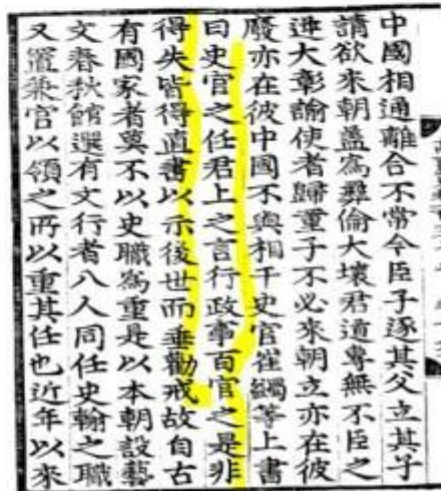 中國相通離合不常今臣子逐其父立其子
請欲來朝蓋爲彝倫大壞君道專無不臣之
迹大彰諭使者歸童子不必來朝立亦在彼
廢亦在彼中國不與相干史官崔蠲等上書
曰史官之任君上之言行政事百官之是非
得失皆得直書以示後世而垂勸戒故自古
有國家者莫不以史職爲重是以本朝設藝
文春秋館選有文行者八人同任史翰之職
又置兼官以領之所以重其任也近年以來